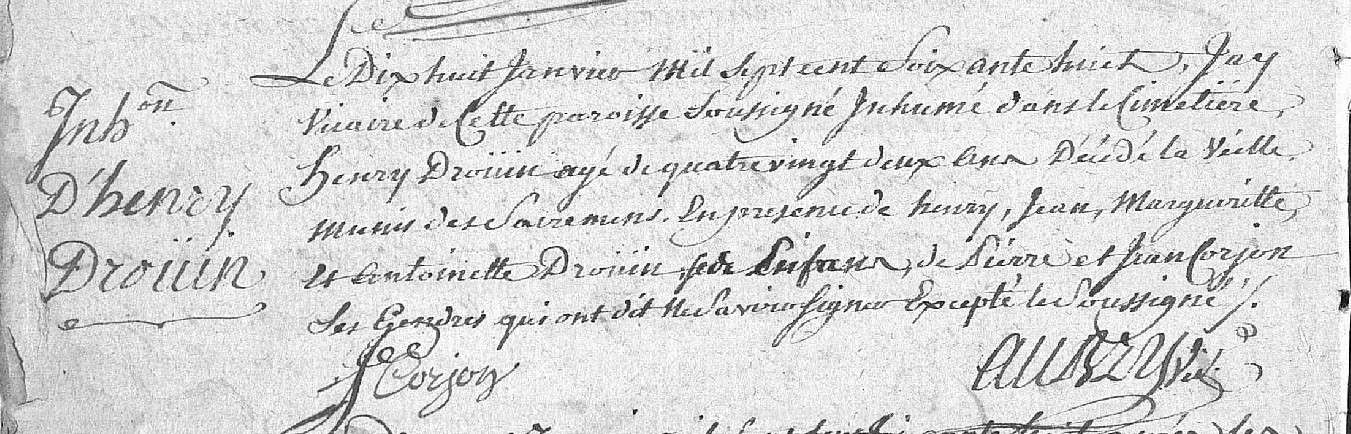 Inh.on
D'henry
Droüin
Le Dix huit Janvier Mil Sept cent Soixante huit, Jay
Vicaire de Cette paroisse Soussigné Inhumé dans le Cimetiére
henry Droüin agé de quatre vingt deux Ans Décédé la Veille
Munis des Sacremens. En presence de henry, Jean, Margueritte,
et Antoinette Droüin, Enfans, de Piérre et Jean Corjon
Ses Gendres qui ont dit Ne Savoir Signer Excepté le Soussigné ./.
J Corjon
AUBRY Vic.